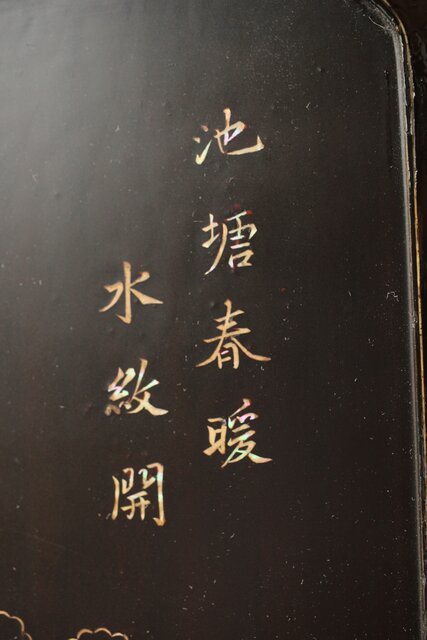 池塘春暖
水紋開